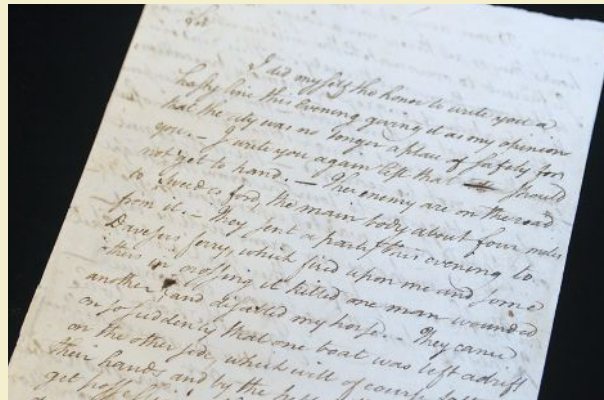 Sir
I did myself the honor to write you a
hasty line this evening giving it as my opinion
that the city was no longer a place of safety for
you. — I write you again lest that should
not get to hand. — The enemy are on the road
to Swedes ford, the main body about four miles
from it. — They sent a party this evening to
Davesers ferry, which fired upon me and some
others in crossing it killed one man wounded
another, and disabled my horse. — They came
on so suddenly that one boat was left adrift
on the other side, which will of course fall
their hands and by the
get